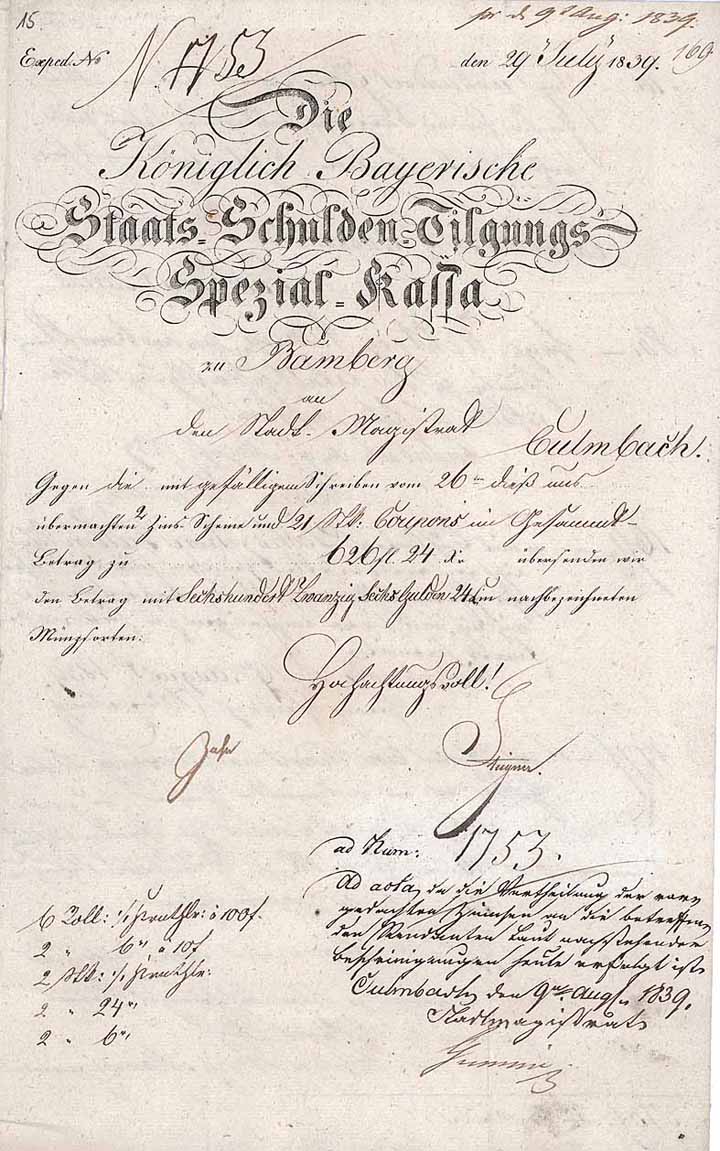 15
pr. d. 9t Aug: 1839.
Exped. No N. 1753
den 29 July 1839. 169
Die
Königlich Bayerische
Staats=Schulden=Tilgungs
Spezial=Kassa
zu Bamberg
an
den Stadt-Magistrat
Culmbach.
Gegen die mit gefälligem Schreiben vom 26ten dieß uns
übermachten 2 Zins-Scheine und 21 Stk: Coupons im Gesammt-
Betrag zu 626 fl. 24 Xr. übersenden wir
den Betrag mit Sechshundert Zwanzig Sechs Gulden, 24 X in nachbezeichneten
Münzsorten:
Hochachtungsvoll!
ad Num: 1753.
Ad acta, da die Vertheilung der vor-
gedachten Zinsen an die betreffen-
den Rendanten laut nachstehender
Bescheinigungen heute erfolgt ist.
Culmbach, den 9ten Aug. 1839.
Stadtmagistrat
6 Roll: à 100 f.
2 " 6" à 10 f
2 Stk:
2 " 24"
2 " 6"